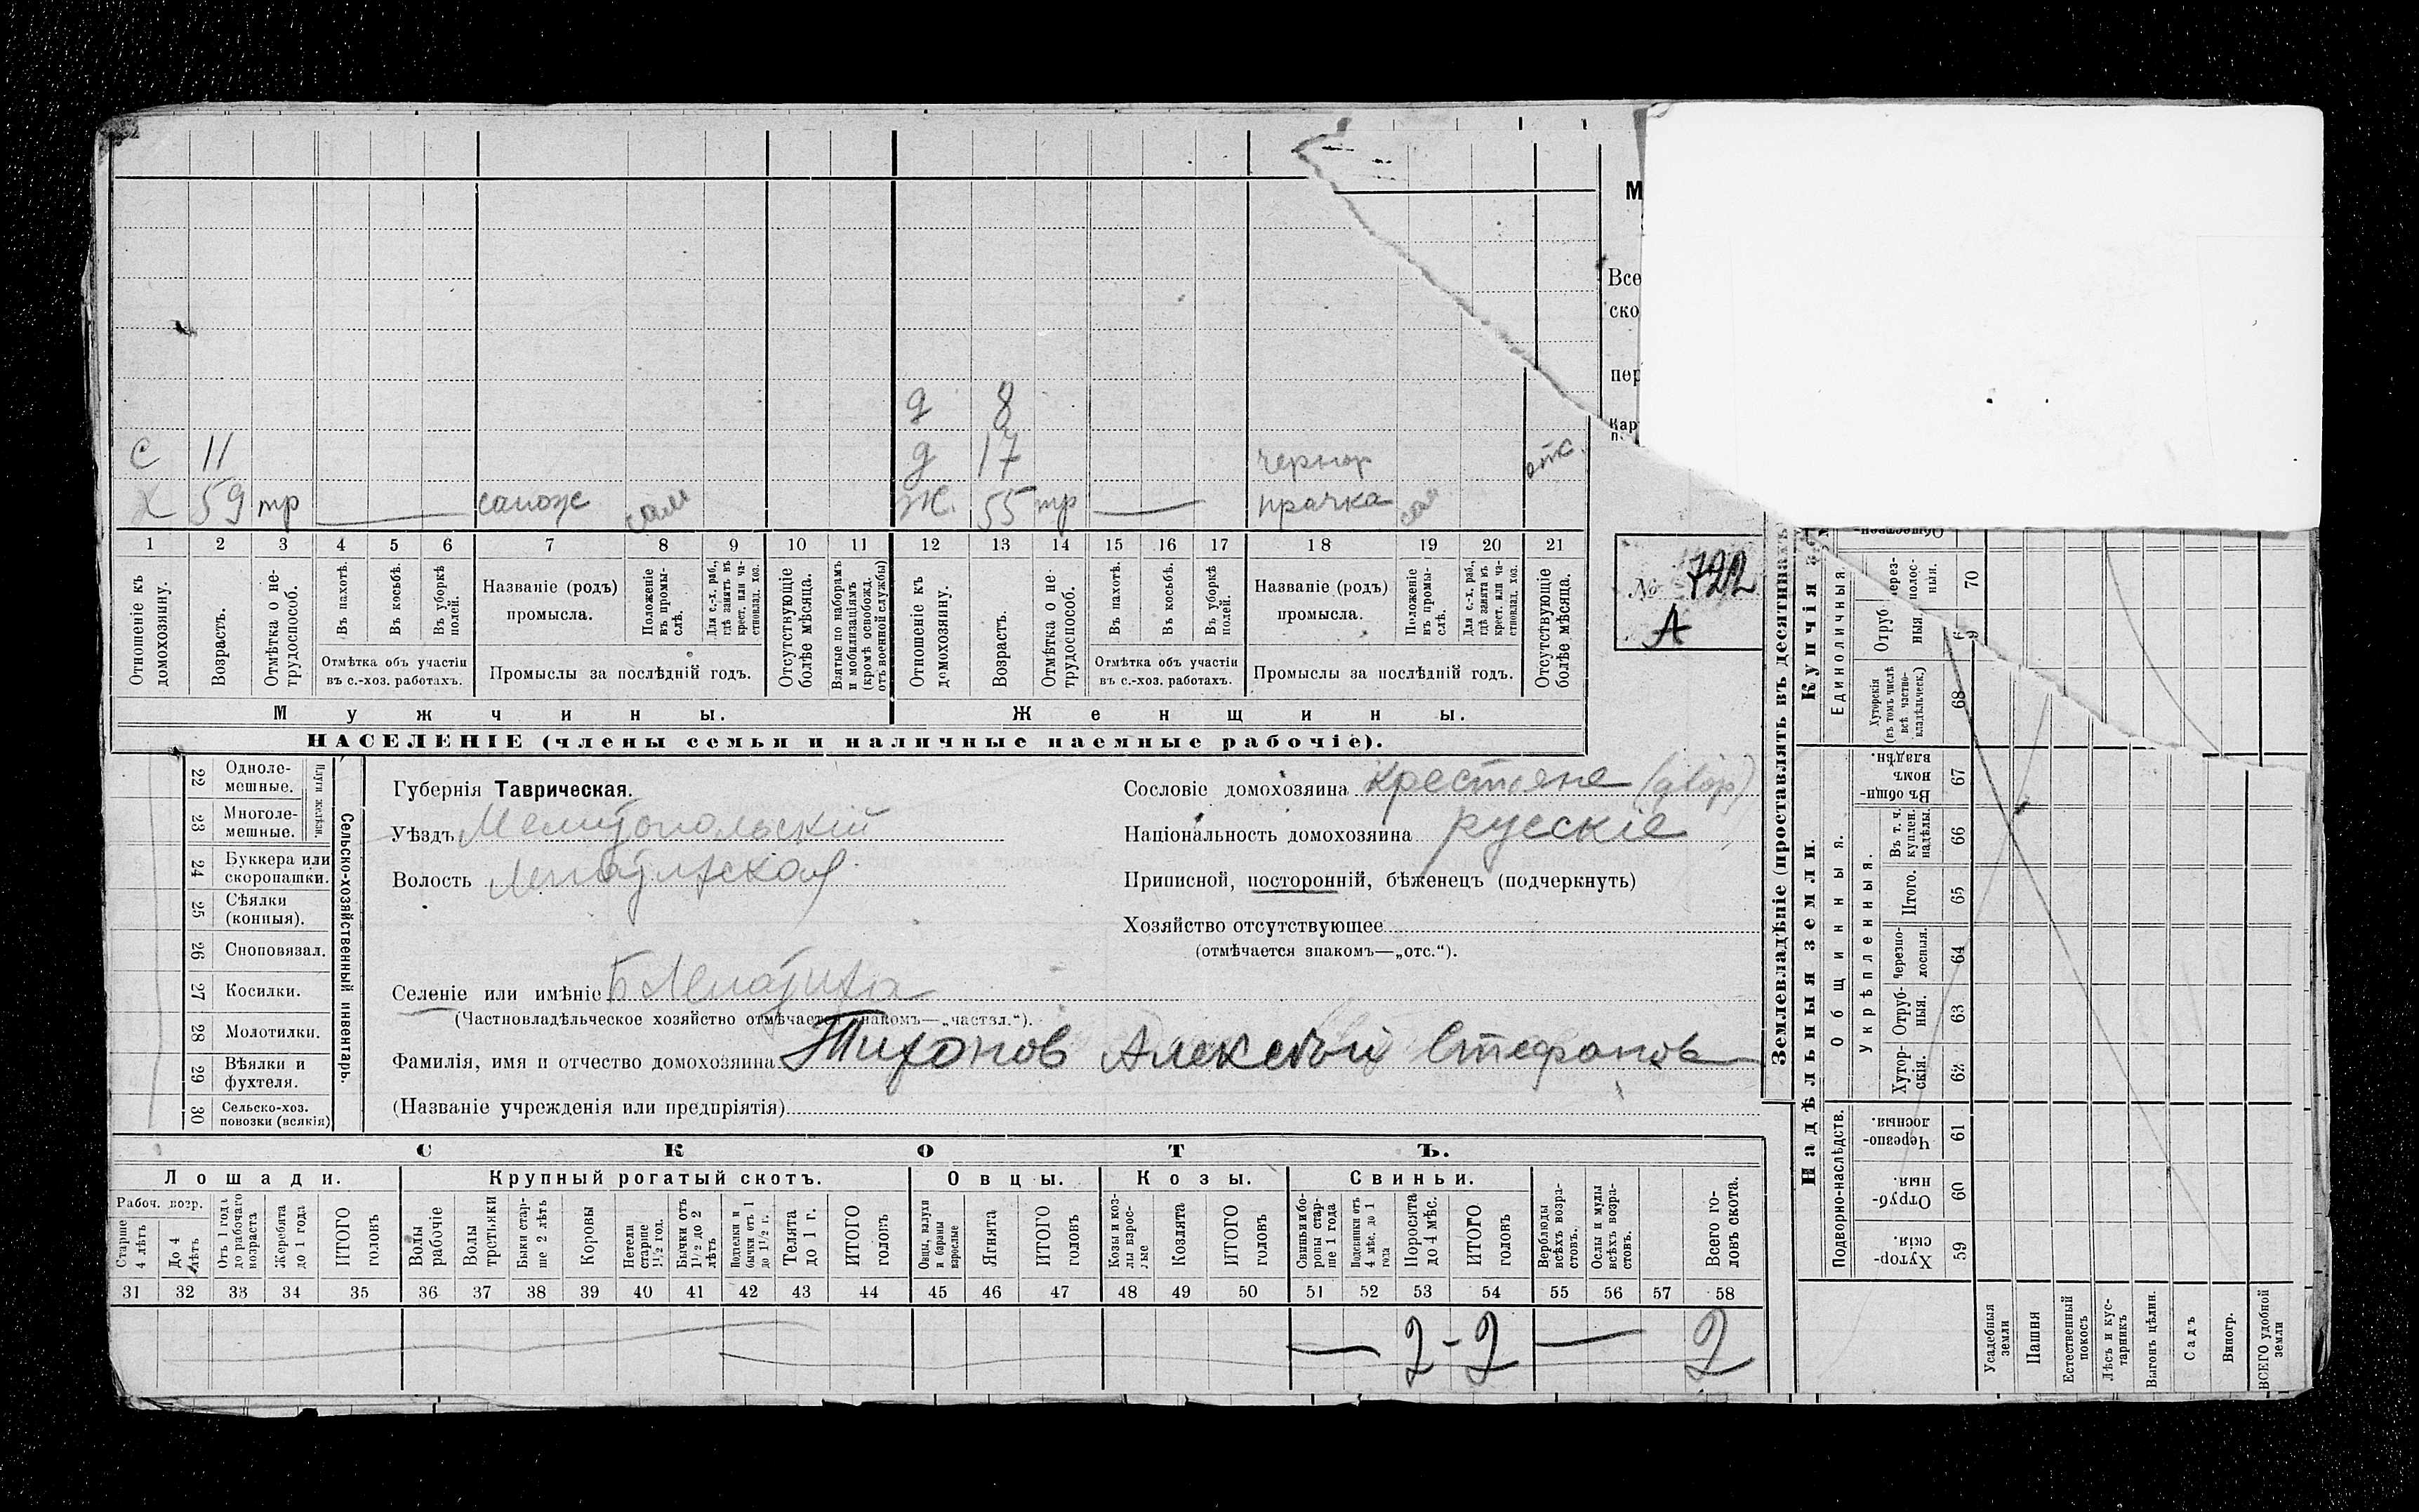 д 8
с 11 д 17 чернор отс.
Х 59 тр сапож сам Ж. 55 тр прачка сам
1 2 3 4 5 6 7 8 9 10 11 12 13 14 15 16 17 18 19 20 21
Отношеніе къ домохозяину.
Возрастъ.
Отмѣтка о не-трудоспособ.
Въ пахотѣ.
Въ косьбѣ.
Въ уборкѣ полей.
Отмѣтка объ участіи
въ с.-хоз. работахъ.
Названіе (родъ)
промысла.
Положеніе въ промы-слѣ.
Для с.-х. раб., гдѣ занятъ въ крест. или ча-стновлад. хоз.
Промыслы за послѣдній годъ.
Отсутствующіе болѣе мѣсяца.
Взятые по наборамъ и мобилизаціямъ (кромѣ освобожд. отъ военной службы)
Отношеніе къ домохозяину.
Возрастъ.
Отмѣтка о не-трудоспособ.
Въ пахотѣ.
Въ косьбѣ.
Въ уборкѣ полей.
Отмѣтка объ участіи
въ с.-хоз. работахъ.
Названіе (родъ)
промысла.
Положеніе въ промы-слѣ.
Для с.-х. раб., гдѣ занята въ крест. или ча-стновлад. хоз.
Промыслы за послѣдній годъ.
Отсутствующіе болѣе мѣсяца.
Мужчины. Женщины.
НАСЕЛЕНІЕ (члены семьи и наличные наемные рабочіе).
М
Все
ско
пер
Кар
№ 722
А
22 Одноле-мешные.
23 Многоле-мешные.
Плуги желѣзн.
24 Буккера или скоропашки.
25 Сѣялки (конныя).
26 Сноповязал.
27 Косилки.
28 Молотилки.
29 Вѣялки и фухтеля.
30 Сельско-хоз. повозки (всякія)
Сельско-хозяйственный инвентарь.
Губернія Таврическая.
Уѣздъ Мелитопольскій
Волость Лепатихская
Селеніе или имѣніе Б Лепатиха
(Частновладѣльческое хозяйство отмѣчается знакомъ—„частвл.“).
Фамилія, имя и отчество домохозяина Тихонов Алексѣй Стефанов
(Названіе учрежденія или предпріятія)
Сословіе домохозяина крестяне (двор)
Національность домохозяина русскіе
Приписной, посторонній, бѣженецъ (подчеркнуть)
Хозяйство отсутствующее
(отмѣчается знакомъ—„отс.“).
СКОТЪ.
Лошади. Крупный рогатый скотъ. Овцы. Козы. Свиньи.
Рабоч. возр.
Старше 4 лѣтъ
До 4 лѣтъ
Отъ 1 года до рабочаго возраста
Жеребята до 1 года
ИТОГО головъ
Волы рабочіе
Волы третьяки
Быки стар-ше 2 лѣтъ
Коровы
Нетели старше 1½ год.
Бычки отъ 1½ до 2 лѣтъ
Подтелки и бычки отъ 1 до 1½ г.
Телята до 1 г.
ИТОГО головъ
Овцы, валухи и бараны взрослые
Ягнята
ИТОГО головъ
Козы и коз-лы взрос-лые
Козлята
ИТОГО головъ
Свиньи и бо-ровы стар-ше 1 года
Подсвинки отъ 4 мѣс. до 1 года
Поросята до 4 мѣс.
ИТОГО головъ
Верблюды всѣхъ возра-стовъ.
Ослы и мулы всѣхъ возра-стовъ.
Всего го-ловъ скота.
31 32 33 34 35 36 37 38 39 40 41 42 43 44 45 46 47 48 49 50 51 52 53 54 55 56 57 58
— 2 - 2 — 2
Землевладѣніе (проставлять въ десятинахъ
Надѣльныя земли.
Купчія з
Единоличныя
Общинныя.
Укрѣпленныя.
Подворно-наслѣдств.
Общественн-
Через-полос-ныя. 70
Отруб ныя. 69
Хуторскія (въ томъ числѣ всѣ частно-владѣльческ.) 68
Въ общи-номъ владѣн. 67
Въ т. ч. куплен. надѣлы. 66
Итого. 65
Черезпо-лосныя. 64
Отруб-ныя. 63
Хутор-скія. 62
Черезпо-лосныя. 61
Отруб-ныя. 60
Хутор-скія. 59
Усадебныя земли
Пашня
Естественный покосъ
Лѣсъ и кус-тарникъ
Выгонъ цѣлин.
Садъ
Виногр.
ВСЕГО удобной земли